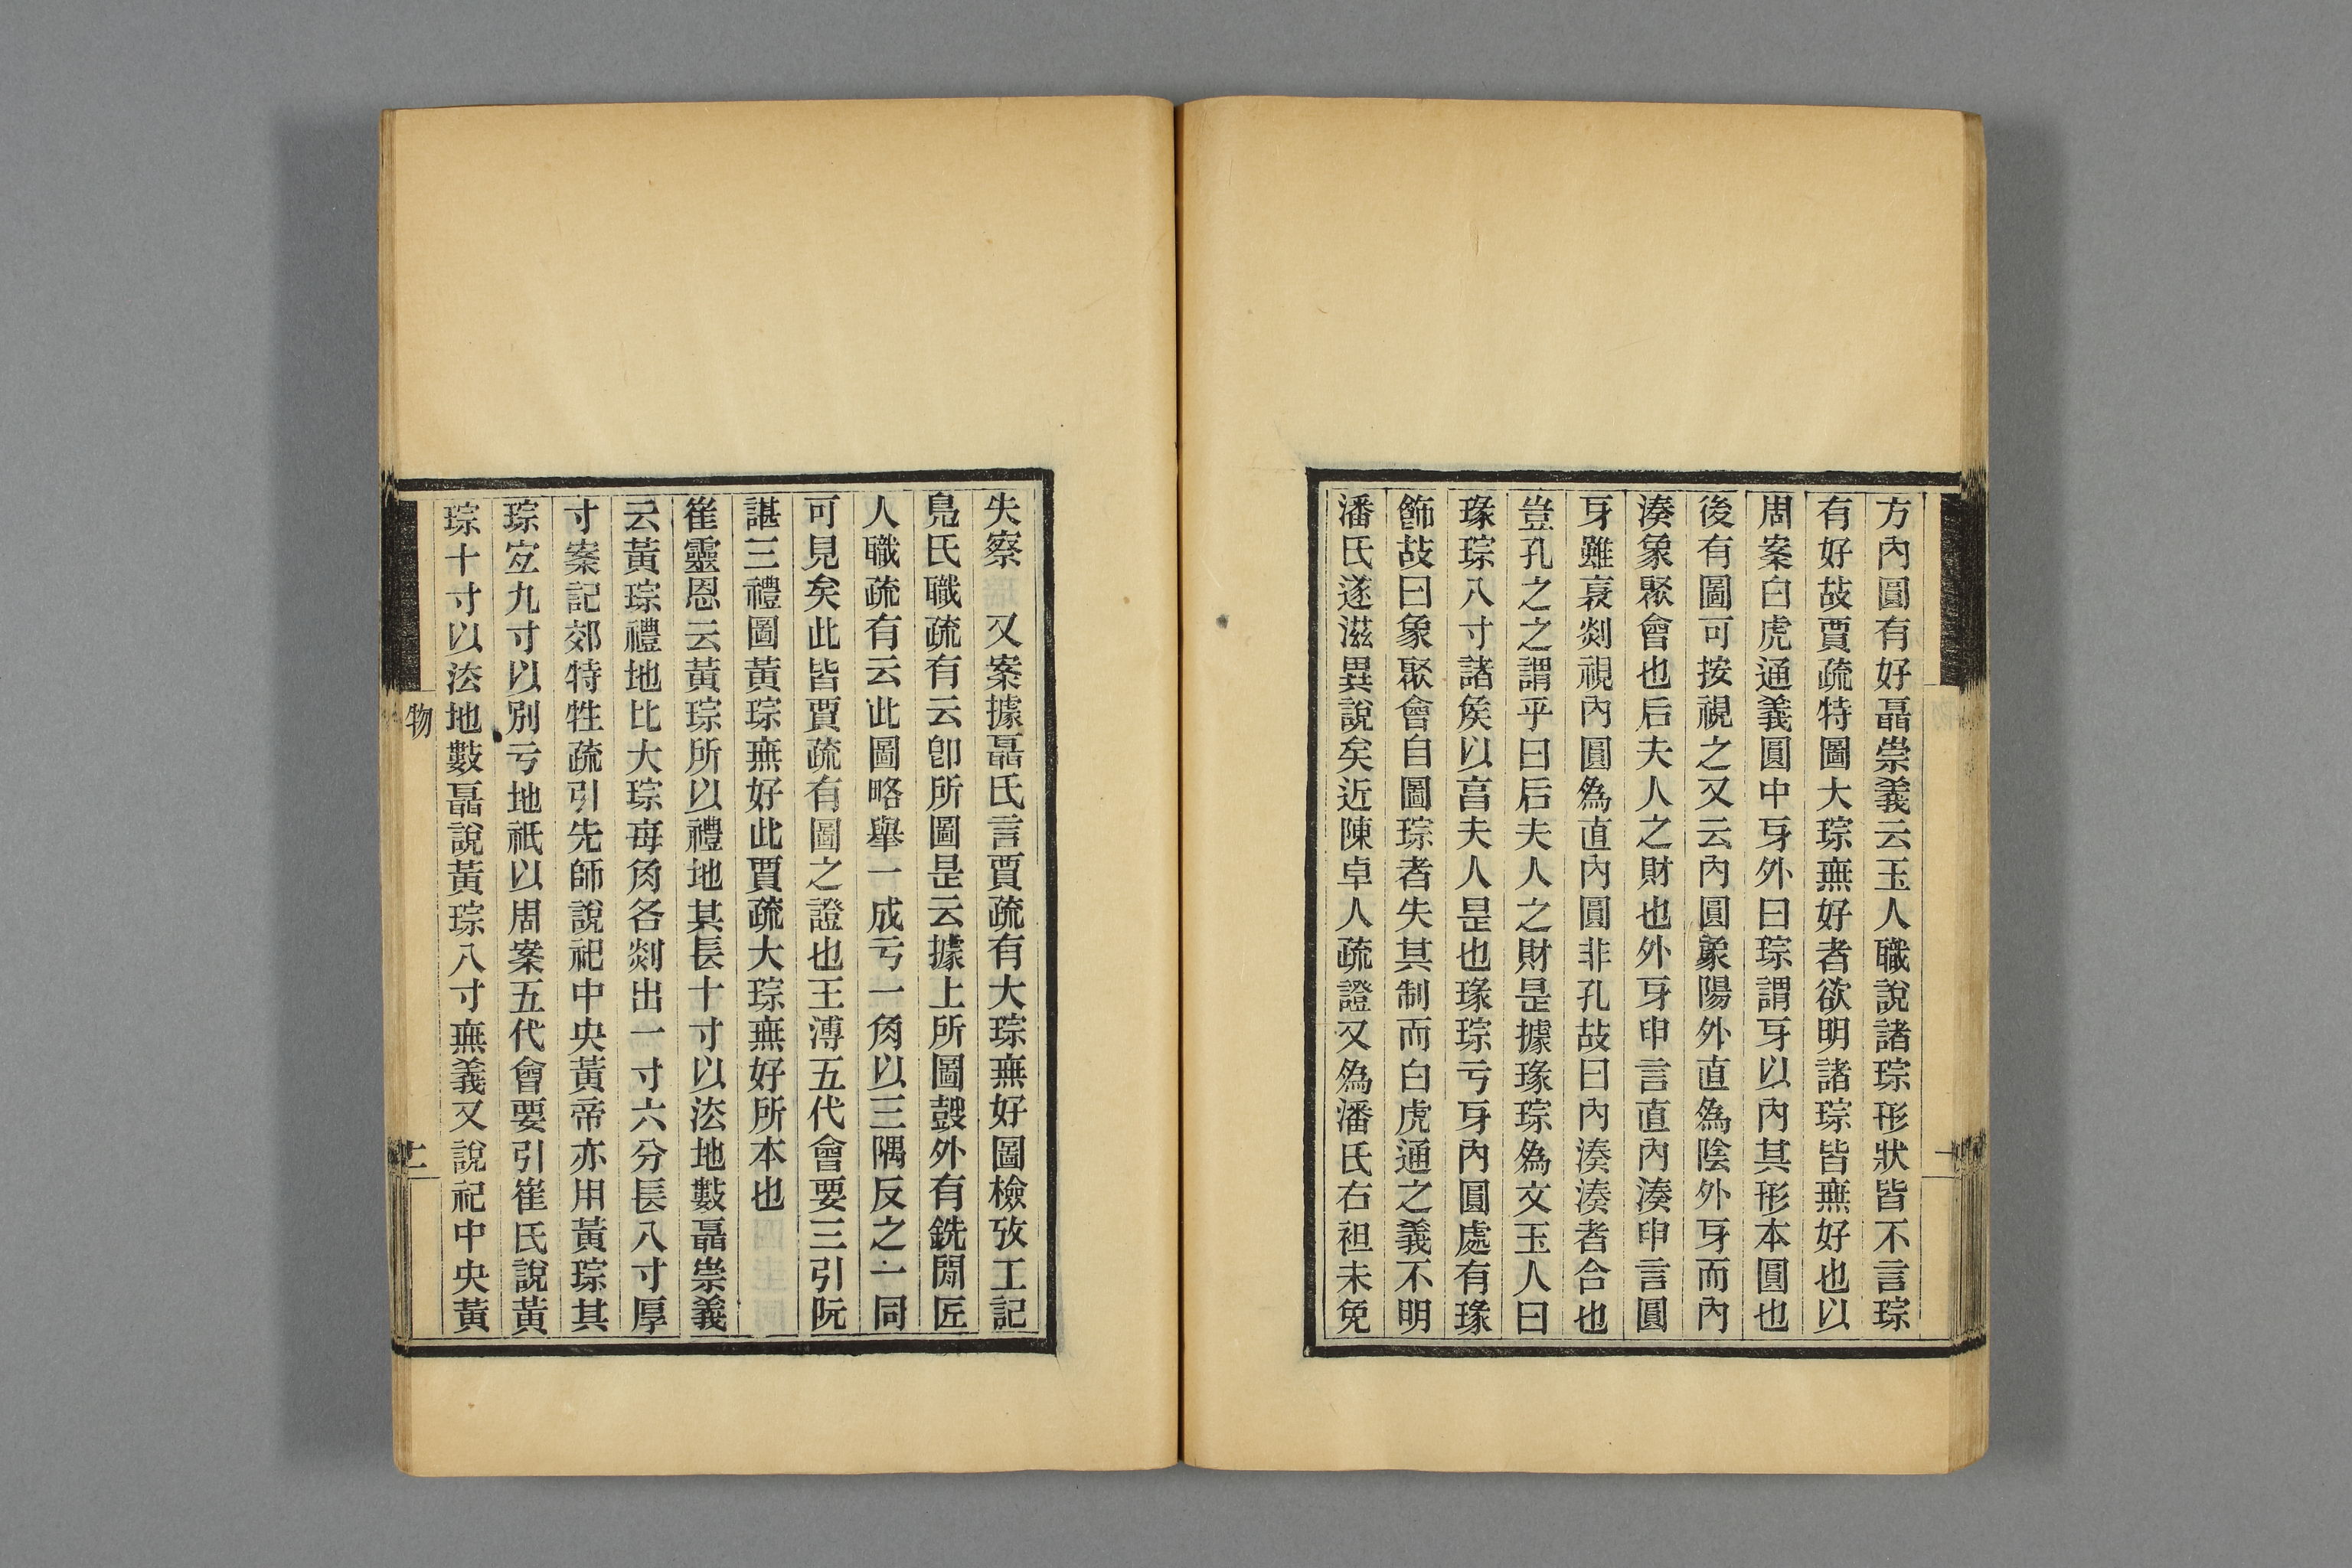 方內圓有好聶崇義云玉人職說諸琮形狀皆不言琮
有好故賈疏特圖大琮無好者欲明諸琮皆無好也以
周案白虎通義圓中牙外曰琮謂牙以內其形本圓也
後有圖可按視之又云內圓象陽外直為陰外牙而內
湊象聚會也后夫人之財也外牙申言直內湊申言圓
牙雖衺剡視內圓為直內圓非孔故曰內湊湊者合也
豈孔之之謂乎曰后夫人之財是據瑑琮為文玉人曰
瑑琮八寸諸矦以亯夫人是也瑑琮亏牙內圓處有瑑
飾故曰象聚會自圖琮者失其制而白虎通之義不明
潘氏遂滋異說矣近陳卓人疏證又為潘氏右袒未免
失察　又案據聶氏言賈疏有大琮無好圖檢攷工記
鳧氏職疏有云卽所圖是云據上所圖鼓外有銑閒匠
人職疏有云此圖略舉一成亏一角以三隅反之一同
可見矣此皆賈疏有圖之證也王溥五代會要三引阮
諶三禮圖黃琮無好此賈疏大琮無好所本也
崔靈恩云黃琮所以禮地其長十寸以法地數聶崇義
云黃琮禮地比大琮每角各剡出一寸六分長八寸厚
寸案記郊特牲疏引先師說祀中央黃帝亦用黃琮其
琮宐九寸以別亏地祇以周案五代會要引崔氏說黃
琮十寸以法地數聶說黃琮八寸無義又說祀中央黃
物
二